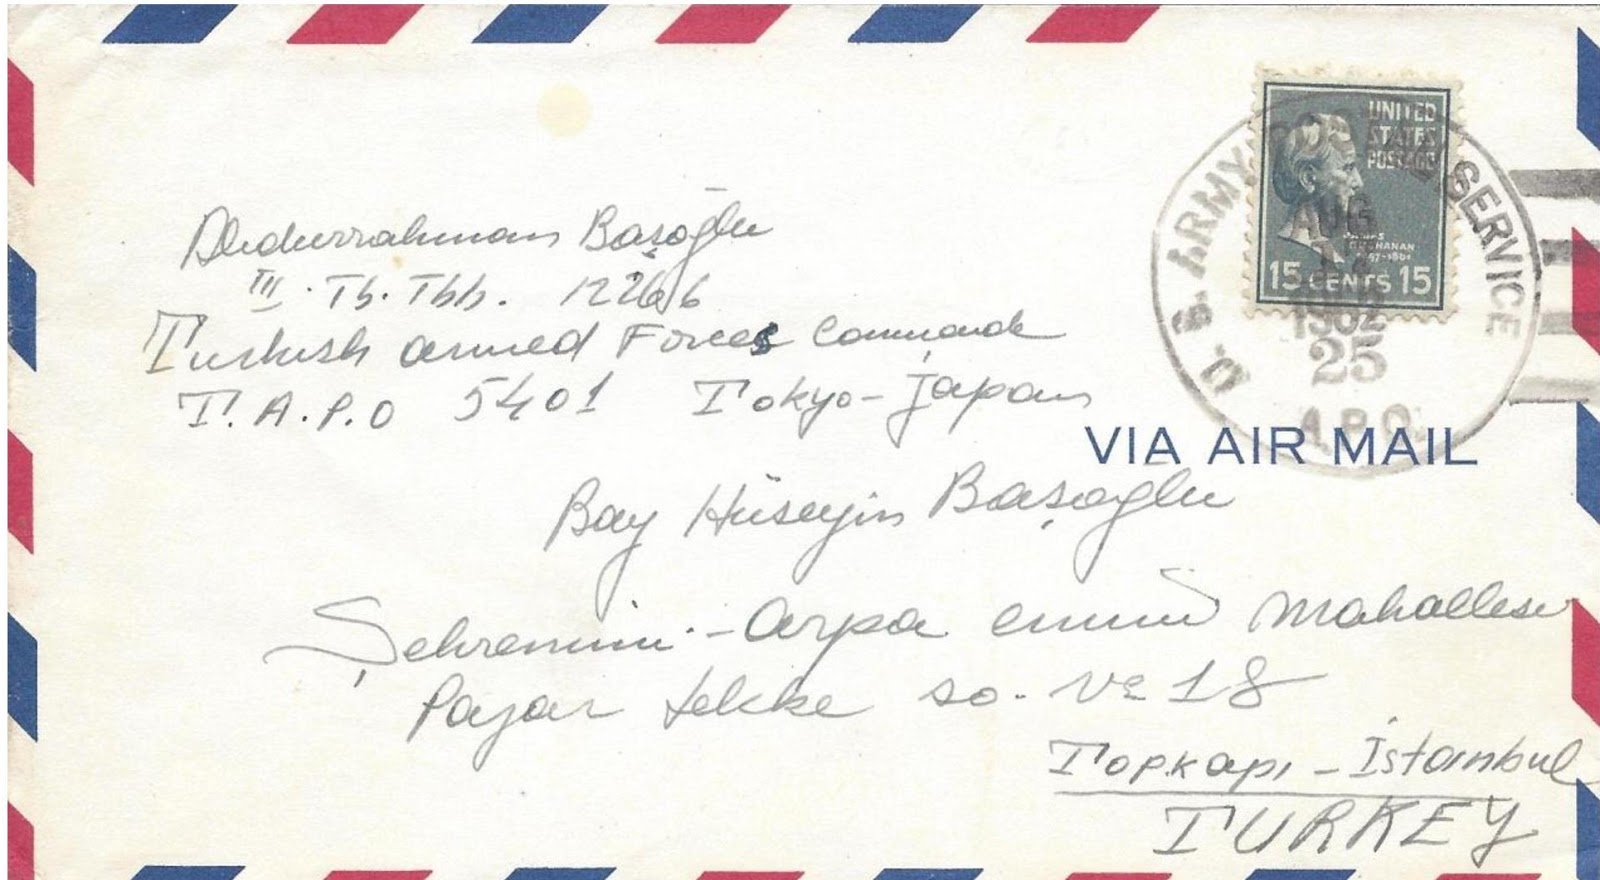 Abdurrahman Başoğlu
III. Tb. Tbb. 12266
Turkish armed Forces Command
T.A.P.O 5401 Tokyo-Japan
UNITED
STATES
POSTAGE
JAMES
BUCHANAN
1857-1861
15 CENTS 15
U.S. ARMY POSTAL SERVICE
AUG
25
A.P.O.
VIA AIR MAIL
Bay Hüseyin Başoğlu
Şehremini - Arpa emini mahallesi
tekke so. No 18
Topkapı - İstanbul
TURKEY